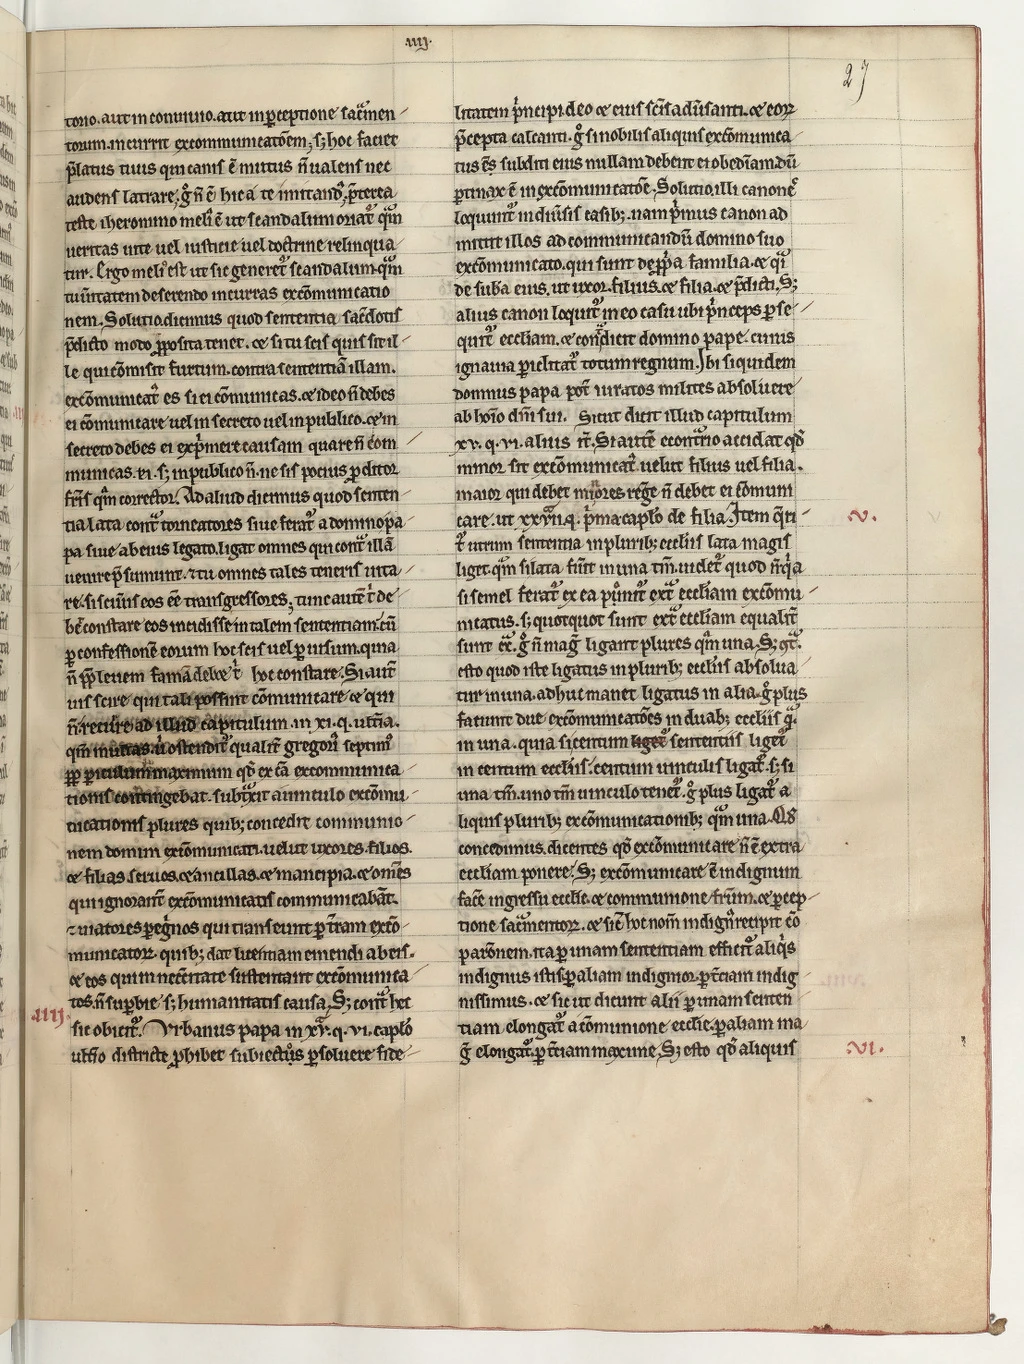 .iiij.
27
torio. aut in conuiuio. aut in p̲ceptione sac̄men-
torum. incurrit excommunicatōem; s; hoc faciet
p̄latus tuus qui canis ē mutus n̄ ualens nec
audens latrare; g̊ n̄ ē hic a te imitand᷒. p̄terea
teste iheronimo meli᷒ ē ut scandalum oriat᷒ qm̄
ueritas uite uel iusticie uel doctrine relinqua-
tur. Ergo meli᷒ est ut sic generet᷒ scandalum. qm̄
tu ūitatem deserendo incurras excōmunicatio
nem. Solutio. dicimus quod sententia sac̄dotis
p̄dicto modo p̲posita tenet. & si tu scis quis sit il-
le qui cōmisit furtum. contra sententiā illam.
excōmunicat᷒ es si ei cōmunicas. & ideo n̄ debes
ei cōmunicare uel in secreto uel in publico. & in
secreto debes ei exp̄mere causam quare n̄ com-
municas. ei. s; in publico n̄. ne sis pocius p̲ditor
fr̄is qm̄ corrector. Ad aliud dicimus quod senten-
tia lata cont᷒ torneatores siue ferat᷒ a domino pa-
pa siue ab eius legato. ligat omnes qui cont᷒ illā
uenire p̄sumunt. & tu omnes tales teneris uita-
re. si scim᷒ eos eē transgressores; tunc autē t᷒ de-
bēt constare eos incidisse in talem sententiam. cū
p̲ confessionē eorum hoc scis uel p̲ uisum. quia
n̄ p̲p̲ leuem famā debet t᷒ hoc constare. Si aut̄
uis scire qui tali possint cōmunicare & qui
n̄. recurre ad illud capitulum. in xi. q. iii.
qm̄ multos. u᷒ ostendit᷒ qualit̄ gregori᷒ septim᷒
p̲p̲ p̲iculum maximum qd̄ ex cā excommunica-
tionis contingebat. subt᷒xit a uinculo excōmu-
nicationis plures quib; concedit communio-
nem domini excōmunicati. uelut uxores. filios.
& filias. seruos. & ancillas. & mancipia. & om̄s
qui ignorant excōmunicatis communicabāt.
& uiatores p̲eg̊nos qui transeunt p̲ t᷒ram excō-
municator᷒. quib; dat licentiam emendi ab eis.
& eos qui in necc̄itate sustentant excōmunica-
tos. n̄ sup̲bie s; humanitatis causa. S; cont᷒ hec
.iiij.
sic obicit᷒. Vrbanus papa in xv. q. vi. cap̄lo
ultīo districte p̲hibet subiect᷒is p̲soluere fide-
litatem p̄ncipi. deo & eius sc̄is aduersanti. & eor᷒
p̄cepta calcanti. g̊ si nobilis aliquis excōmunica-
tus ē. subditi eius nullam debent ei obediam. dū
p̲tinax ē in excōmunicatōe. Solutio. illi canones
loquunt᷒ in diūsis casib;. nam p̄mus canon ad
mittit illos ad communicandū domino suo
excōmunicato. qui sunt de p̲p̲a familia. & qi
de suba eius. ut uxor. filius. & filia. & p̄dicti. S;
alius canon loquit᷒ in eo casu ubi p̄nceps p̲se-
quit᷒ eccliam. & cont᷒dicit domino pape. cuius
ignauia p̲iclitat᷒ totum regnum. Ibi siquidem
domnus papa pot̄ iuratos milites absoluere
ab hoīo dn̄i sui. Sicut dicit illud capitulum
xv. q. vi. alius it̄. Si autē econt᷒rio accidat qd̄
minor sit excōmunicat᷒. uelut filius uel filia.
maior qui debet minores regē n̄ debet ei cōmuni
care. ut xxvii. q. p̄ma. cap̄lo de filia. Item q̄ri-
.v.
t᷒ utrum sententia in plurib; eccliis lata magis
liget. qm̄ si lata fūit in una tm̄. uidet᷒ quod n̄. qa
si semel ferat᷒ ex ea punit᷒ ext᷒ eccliam excōmu-
nicatus. s; quotquot sunt ext᷒ eccliam equalit̄
sunt ext᷒. g̊ n̄ mag᷒ ligant plures qm̄ una. S; 9t᷒.
esto quod iste ligatus in plurib; eccliis absolua-
tur in una. adhuc manet ligatus in alia. g̊ plus
faciunt due excōmunicatōes in duab; eccliis q̄.
in una. quia si centum liget᷒ sententiis liget᷒
in centum eccliis. centum uinculis ligat᷒. s; si
una tm̄. uno tm̄ uinculo tenet᷒. g̊ plus ligat᷒ a
liquis plurib; excōmunicationib; qm̄ una. Qd̄
concedimus. dicentes qd̄ excōmunicare n̄ ē extra
eccliam ponere. S; excōmunicare ē indignum
facē ingressu ecclie. & communione fr̄um. & p̲cep-
tione sac̄mentor᷒. & sic̄ hoc nom̄ indign᷒ recipit cō
parōnem. ita p̲ unam sententiam efficit᷒ aliqis
indignus istis. p̲ aliam indignior. p̲ t̄ciam indig-
nissimus. & sicut dicunt alii p̲ unam senten-
tiam elongat᷒ a cōmunione ecclie. p̲ aliam ma-
g᷒ elongat᷒. p̲ t̄ciam maxime. S; esto qd̄ aliquis
.vi.